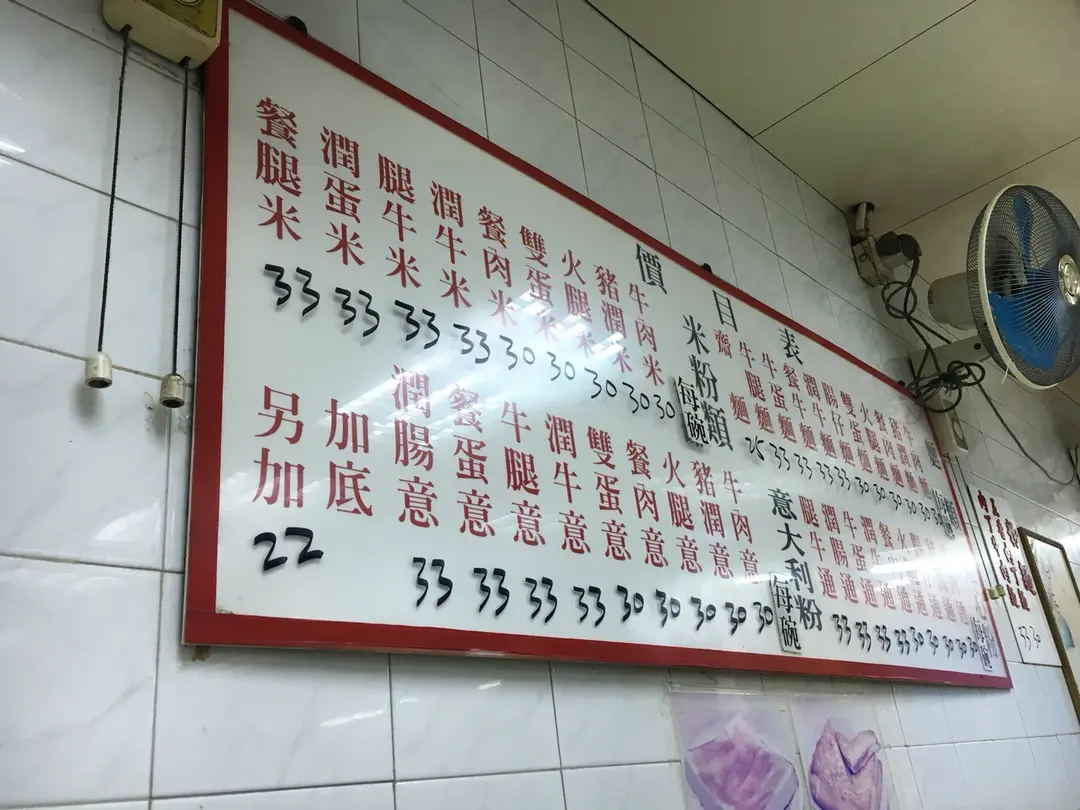 價目表
牛肉麵 30
豬潤麵 30
餐肉麵 30
火腿麵 30
雙蛋麵 30
腸仔麵 33
潤牛麵 33
餐牛麵 33
牛蛋麵 33
牛腿麵 33
齋麵 25
米粉類 每碗
牛肉米 30
豬潤米 30
火腿米 30
雙蛋米 30
餐肉米 30
潤牛米 33
腿牛米 33
潤蛋米 33
餐腿米 33
潤牛通 33
牛蛋通 33
潤腸通 33
腿牛通 33
意大利粉 每碗
牛肉意 30
豬潤意 30
火腿意 30
餐肉意 30
雙蛋意 30
潤牛意 33
牛腿意 33
餐蛋意 33
潤腸意 33
加底
另加 22